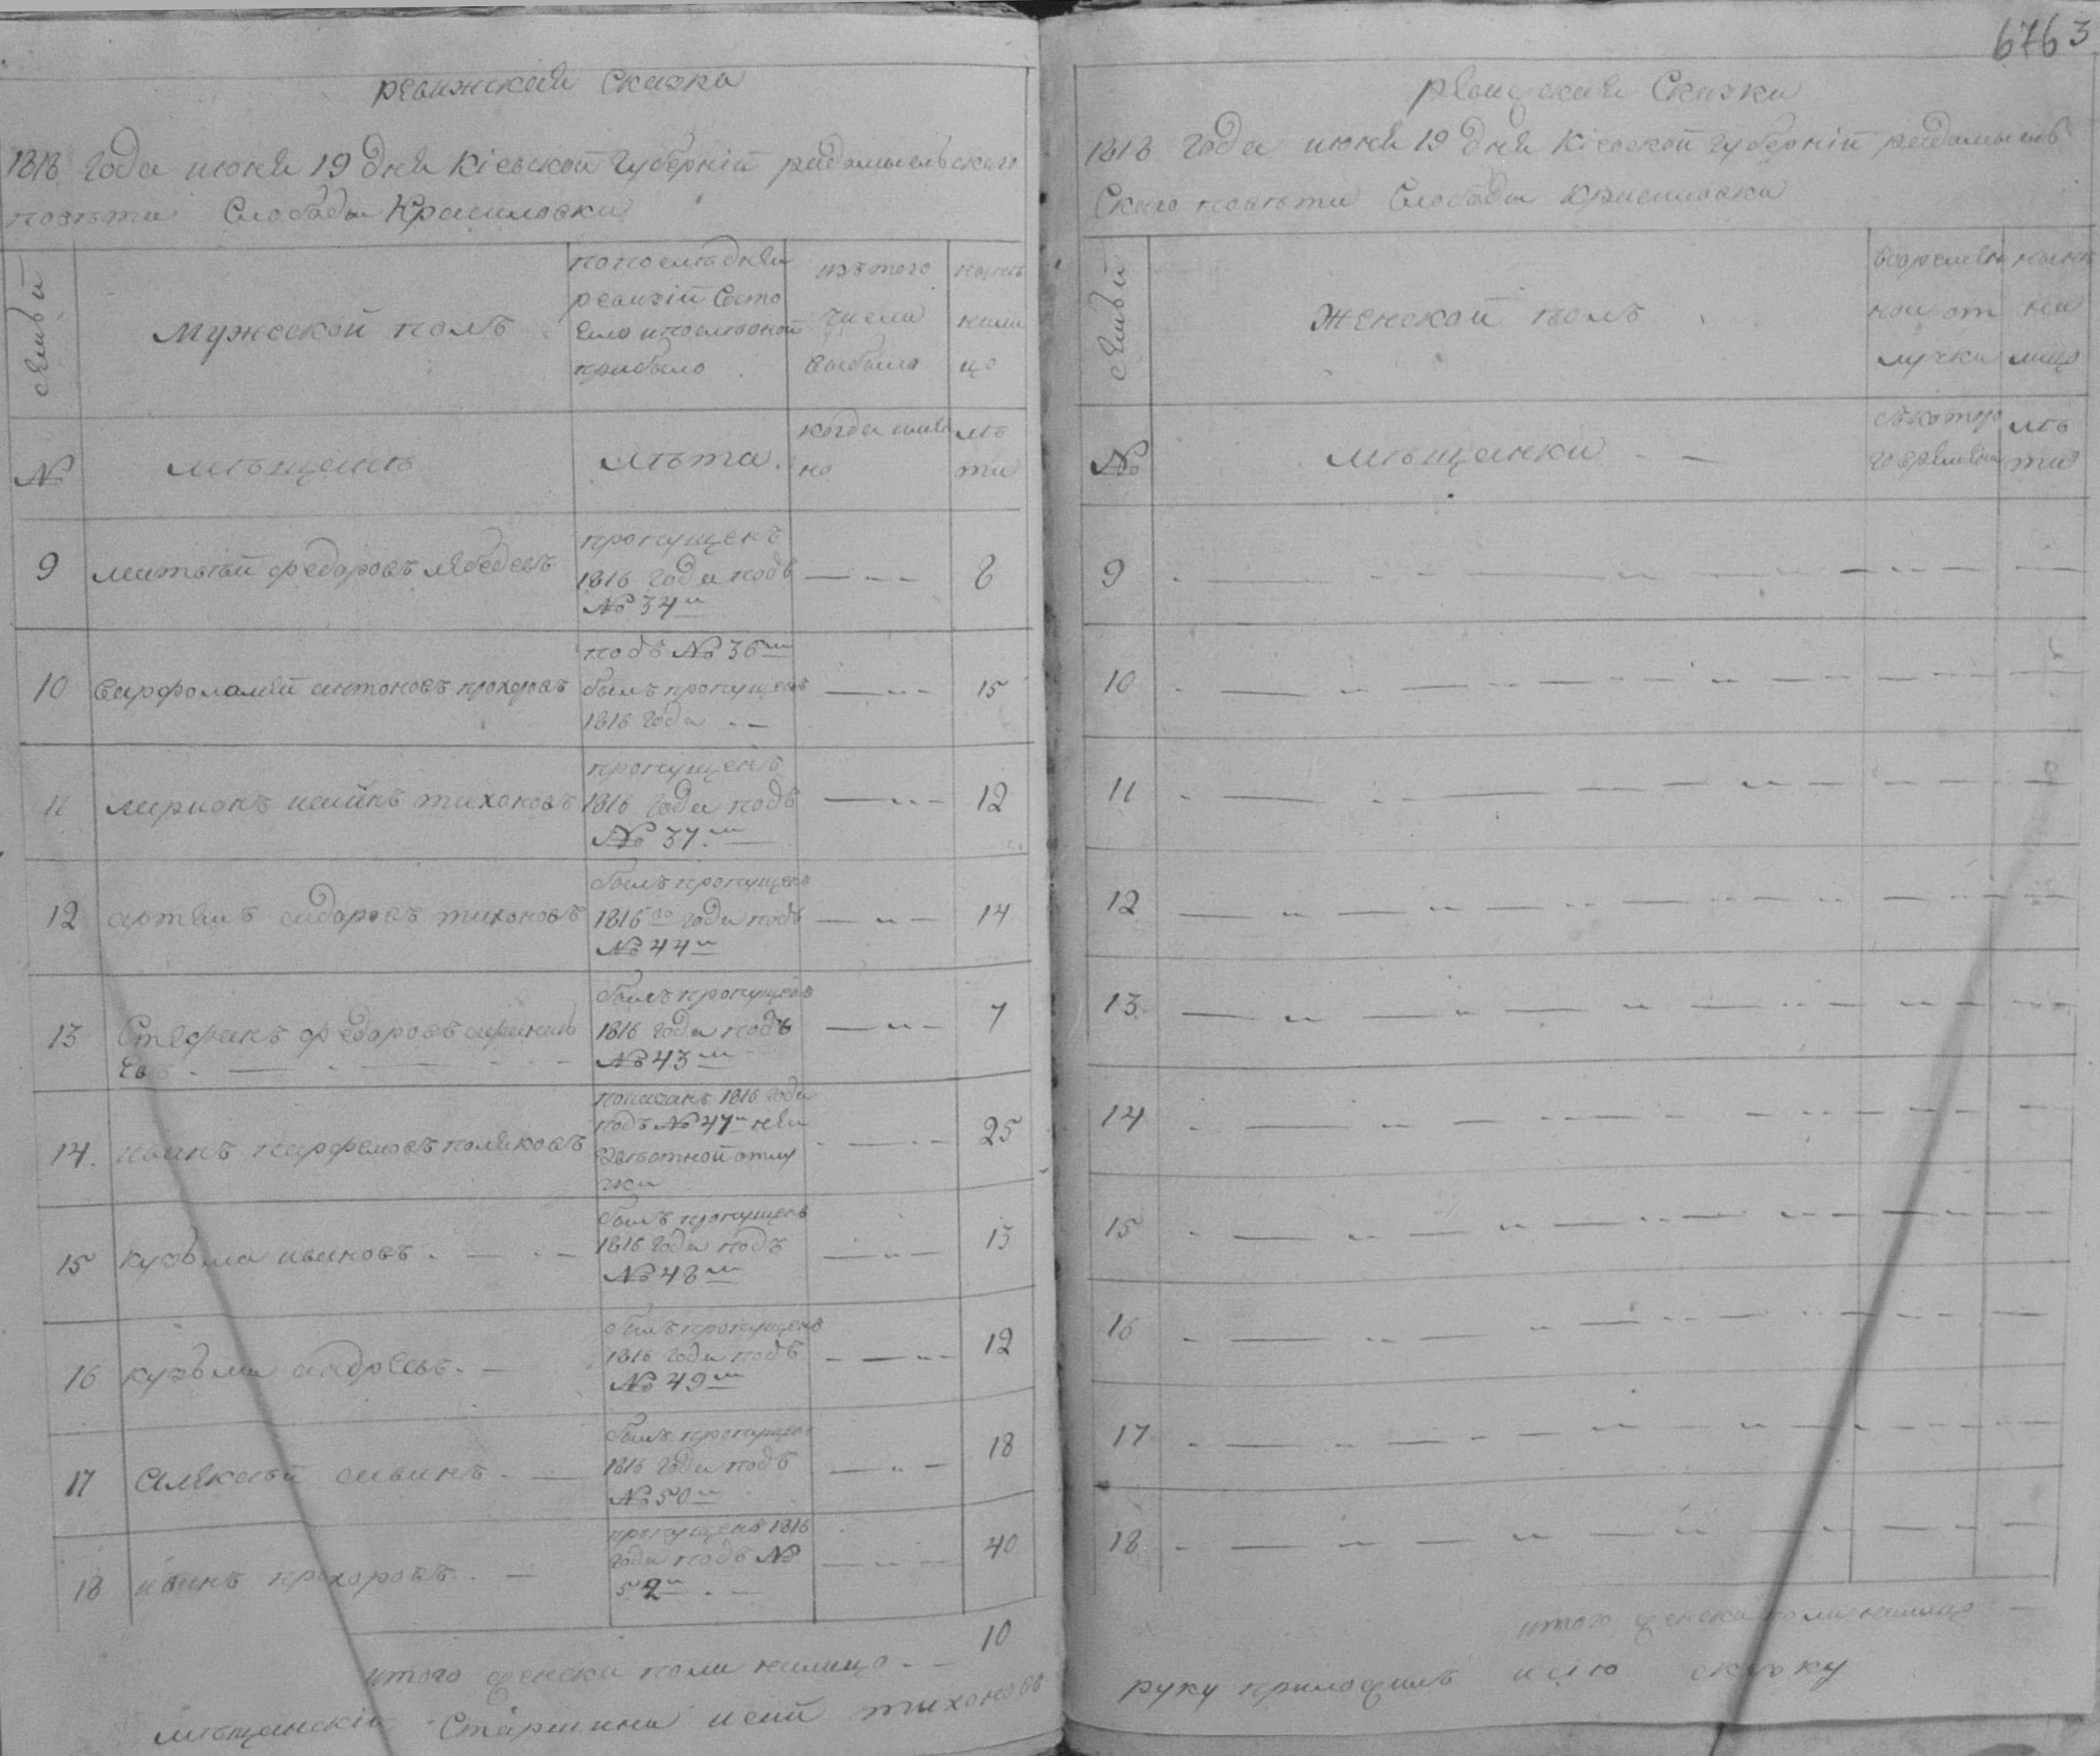 6763
ревижская Сказка
1818 года июня 19 дня Кіевской губерніи радомысльского
повѣта Слободы Красиловки
семьи
мужеской полъ
попоследней
ревизіи состо
ело ипослѣоной
прибыло
изътого
числа
выбыло
нынѣ
нали
цо
№
мѣщанъ
лѣта
когда имян
но
лѣ
та
9 матвѣй федоровъ лебедевъ
пропущенъ
1816 года подъ
№ 34м
8
10 варфоломей антоновъ прохоровъ
подъ № 36м
былъ пропущенъ
1816 года
15
11 ларионъ исаинъ тихоновъ
пропущенъ
1816 года подъ
№ 37м
12
12 артемъ сидоровъ тихоновъ
былъ пропущенъ
1816го года подъ
№ 44м
14
13 Стефанъ федоровъ
былъ пропущенъ
1816 года подъ
№ 43м
7
14 иванъ парфеновъ поляковъ
показанъ 1816 года
подъ № 47м
отлу
чки
25
15 кузьма ивановъ
былъ пропущенъ
1816 года подъ
№ 48м
13
16 кузьма андреевъ
былъ пропущенъ
1816 года подъ
№ 49м
12
17 алексей савинъ
былъ пропущенъ
1816 года подъ
№ 50м
18
18 иванъ прохоровъ
пропущенъ 1816
года подъ №
52м
40
итого пола налицо 10
мѣщанскій Старшина исай тихоновъ
ревижская Сказка
1818 года июня 19 дня Кіевской губерніи радомысль
Скаго повѣта Слободы Красиловки
семьи
женской полъ
времен
ной от
лучки
нынѣ
на
лицо
№
мѣщанки
съкотор
говремени
лѣ
та
9
10
11
12
13
14
15
16
17
18
итого женска пола налицо
руку приложилъ исаю сказку